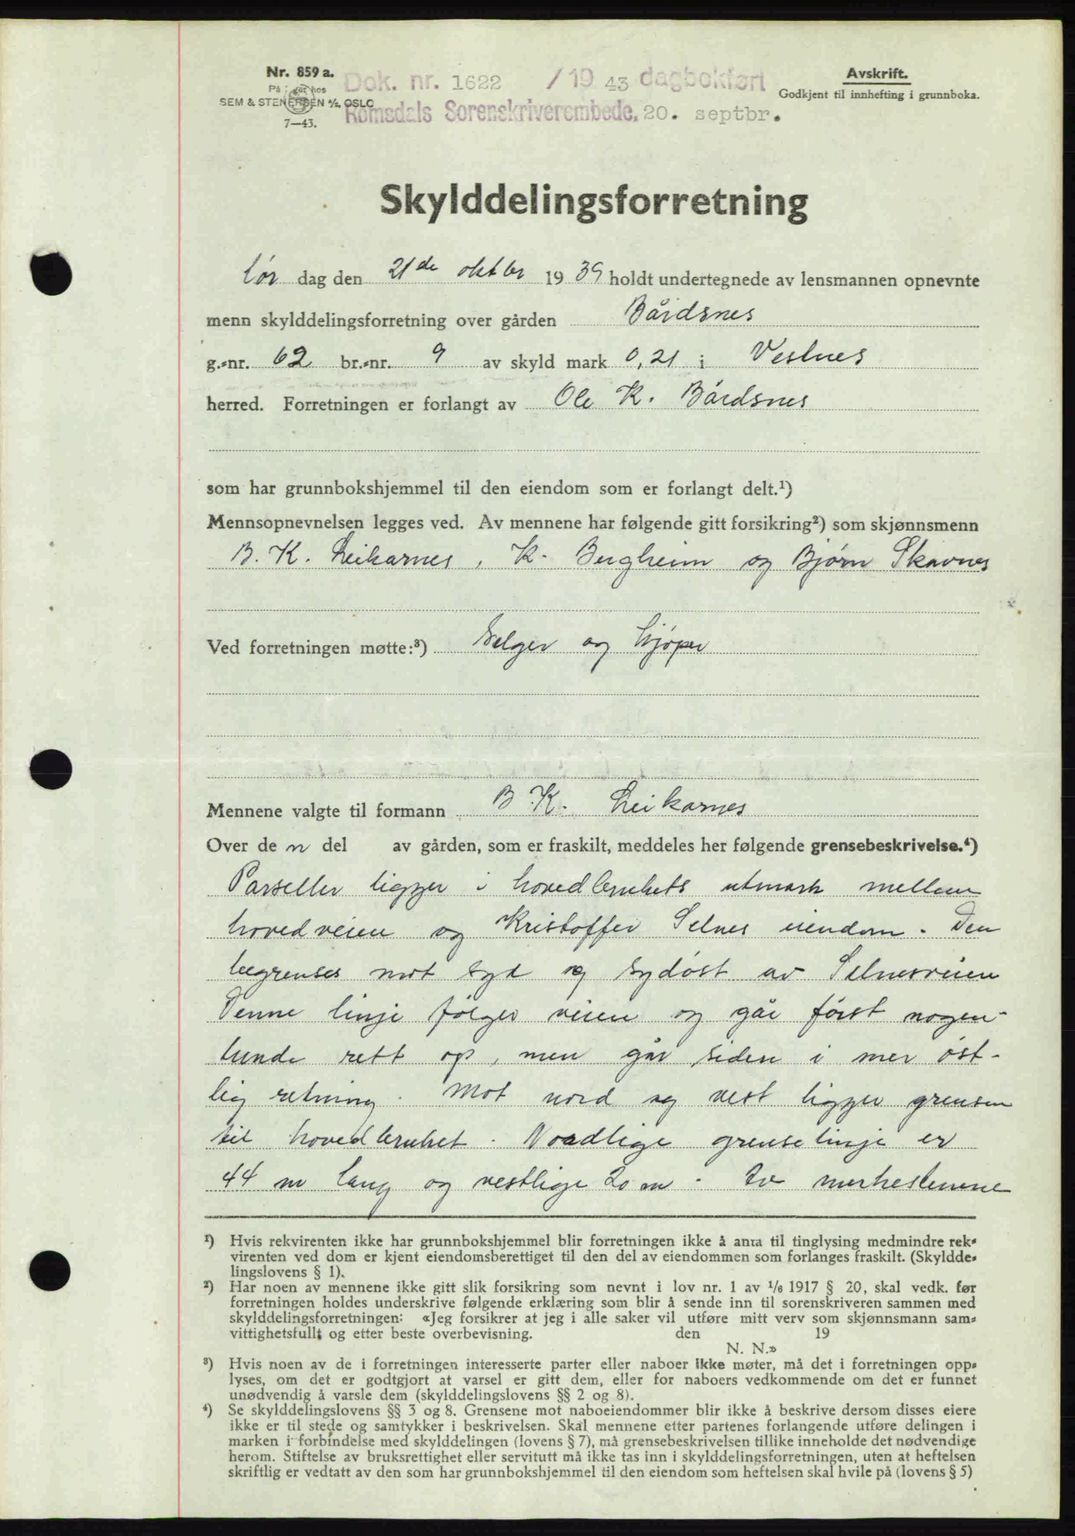 Nr. 859 a.
På lager hos
SEM & STENERSEN A/S, OSLO
7—43.
Dok. nr. 1622 /19 43 dagbokført
Romsdals Sorenskriverembede, 20. septbr.
Avskrift.
Godkjent til innhefting i grunnboka.
Skylddelingsforretning
Lør dag den 21de oktbr 1939 holdt undertegnede av lensmannen opnevnte
menn skylddelingsforretning over gården Bårdsnes
g.-nr. 62 br.-nr. 9 av skyld mark 0,21 i Vestnes
herred. Forretningen er forlangt av Ole K. Bårdsnes
som har grunnbokshjemmel til den eiendom som er forlangt delt.¹)
Mennsopnevnelsen legges ved. Av mennene har følgende gitt forsikring²) som skjønnsmenn
B. K. Leikarnes, K. Bergheim og Bjørn Skavnes
Ved forretningen møtte:³) Selger og kjøper
Mennene valgte til formann B. K. Leikarnes
Over den del av gården, som er fraskilt, meddeles her følgende grensebeskrivelse.⁴)
Parsellen ligger i hovedbrukets utmark mellem
hovedveien og Kristoffer Selnes eiendom. Den
begrenses mot syd og sydøst av Selnesveien
Denne linje følger veien og går først nogen-
lunde rett op, men går siden i mer øst-
lig retning. Mot nord og vest ligger grensen
til hovedbruket. Nordlige grenselinje er
44 m lang og vestlige 20 m. De merkestenene
¹) Hvis rekvirenten ikke har grunnbokshjemmel blir forretningen ikke å anta til tinglysing medmindre rek-
virenten ved dom er kjent eiendomsberettiget til den del av eiendommen som forlanges fraskilt. (Skyldde-
lingslovens § 1).
²) Har noen av mennene ikke gitt slik forsikring som nevnt i lov nr. 1 av 1/6 1917 § 20, skal vedk. før
forretningen holdes underskrive følgende erklæring som blir å sende inn til sorenskriveren sammen med
skylddelingsforretningen: «Jeg forsikrer at jeg i alle saker vil utføre mitt verv som skjønnsmann sam-
vittighetsfullt og etter beste overbevisning. den 19
N. N.»
³) Hvis noen av de i forretningen interesserte parter eller naboer ikke møter, må det i forretningen opp-
lyses, om det er godtgjort at varsel er gitt dem, eller for naboers vedkommende om det er funnet
unødvendig å varsle dem (skylddelingslovens §§ 2 og 8).
⁴) Se skylddelingslovens §§ 3 og 8. Grensene mot naboeiendommer blir ikke å beskrive dersom disses eiere
ikke er til stede og samtykker i beskrivelsen. Skal mennene etter partenes forlangende utføre delingen i
marken i forbindelse med skylddelingen (lovens § 7), må grensebeskrivelsen tillike inneholde det nødvendige
herom. Stiftelse av bruksrettighet eller servitutt må ikke tas inn i skylddelingsforretningen, uten at heftelsen
skriftlig er vedtatt av den som har grunnbokshjemmel til den eiendom som heftelsen skal hvile på (lovens § 5)